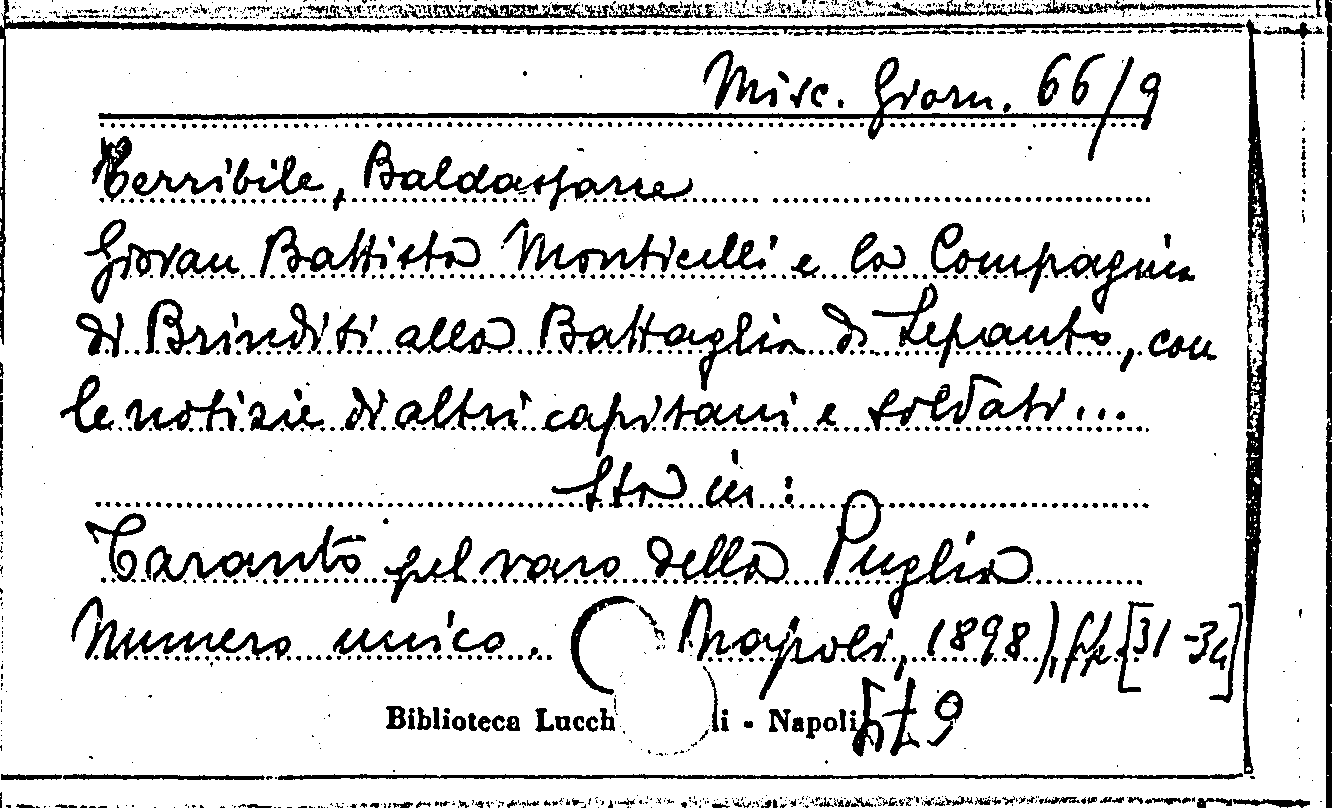 Misc. Giorn. 66/9
Terribile, Baldassarre
Giovan Battista Monticelli e la Compagnia
di Brindisi alla Battaglia di Lepanto, con
le notizie di altri capitani e soldati...
Sta in:
Taranto pel varo della Puglia
Numero unico. (Napoli, 1898), pp. [31-34]
Biblioteca Lucch li - Napoli